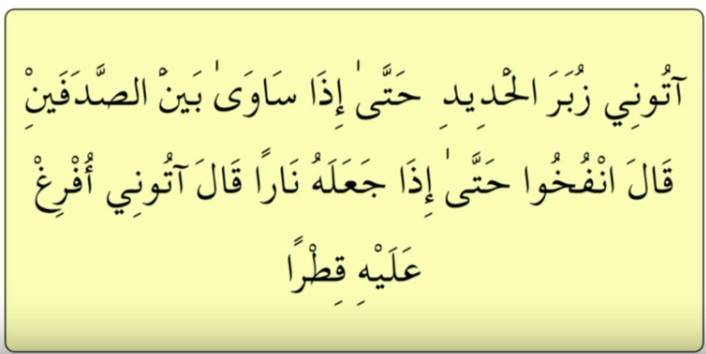 آتُونِي زُبَرَ الْحَدِيدِ حَتَّىٰ إِذَا سَاوَىٰ بَيْنَ الصَّدَفَيْنِ
قَالَ انْفُخُوا حَتَّىٰ إِذَا جَعَلَهُ نَارًا قَالَ آتُونِي أُفْرِغْ
عَلَيْهِ قِطْرًا